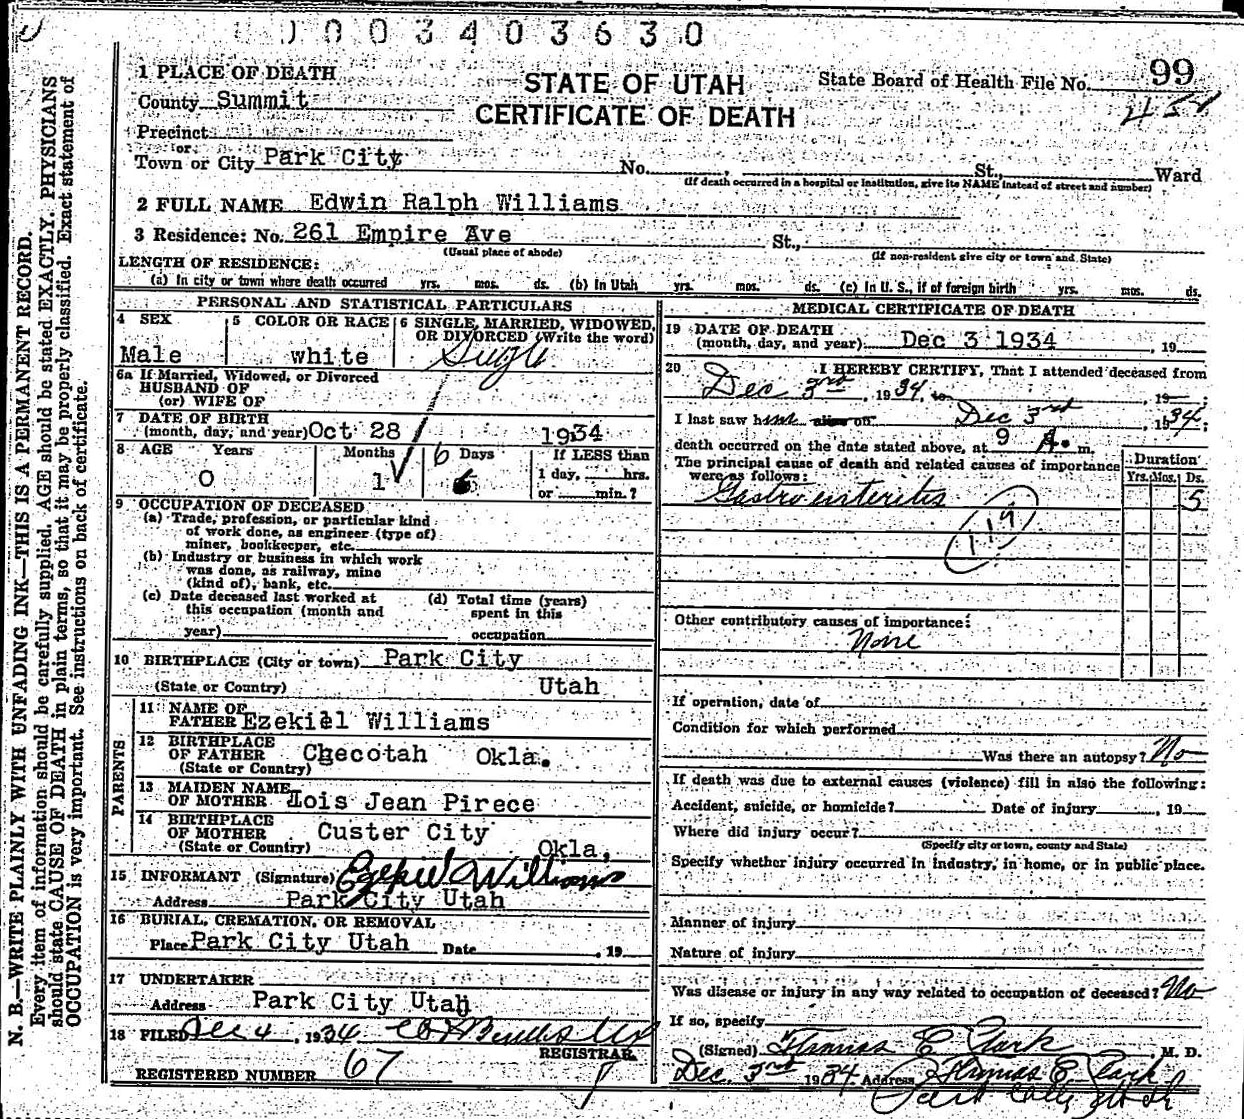 0003403630
1 PLACE OF DEATH
STATE OF UTAH
CERTIFICATE OF DEATH
State Board of Health File No. 99
County Summit
Precinct
or
Town or City Park City No. , St., Ward
(If death occurred in a hospital or institution, give its NAME instead of street and number)
2 FULL NAME Edwin Ralph Williams
3 Residence: No. 261 Empire Ave St.,
(Usual place of abode) (If non-resident give city or town and State)
LENGTH OF RESIDENCE:
(a) In city or town where death occurred yrs. mos. ds. (b) In Utah yrs. mos. ds. (c) In U. S., if of foreign birth yrs. mos. ds.
PERSONAL AND STATISTICAL PARTICULARS
4 SEX
Male
5 COLOR OR RACE
white
6 SINGLE, MARRIED, WIDOWED,
OR DIVORCED (Write the word)
Single
6a If Married, Widowed, or Divorced
HUSBAND OF
(or) WIFE OF
7 DATE OF BIRTH
(month, day, and year) Oct 28 1934
8 AGE Years Months Days If LESS than
0 1 6 1 day, hrs.
or min.?
9 OCCUPATION OF DECEASED
(a) Trade, profession, or particular kind
of work done, as engineer (type of)
miner, bookkeeper, etc.
(b) Industry or business in which work
was done, as railway, mine
(kind of), bank, etc.
(c) Date deceased last worked at
this occupation (month and
year)
(d) Total time (years)
spent in this
occupation
10 BIRTHPLACE (City or town) Park City
(State or Country) Utah
PARENTS
11 NAME OF
FATHER Ezekiel Williams
12 BIRTHPLACE
OF FATHER Checotah Okla.
(State or Country)
13 MAIDEN NAME
OF MOTHER Lois Jean Pirece
14 BIRTHPLACE
OF MOTHER Custer City
(State or Country) Okla,
15 INFORMANT (Signature) Ezekiel Williams
Address Park City Utah
16 BURIAL, CREMATION, OR REMOVAL
Place Park City Utah Date , 19
17 UNDERTAKER
Address Park City Utah
18 FILED Dec 4, 1934
REGISTRAR
REGISTERED NUMBER 67
MEDICAL CERTIFICATE OF DEATH
19 DATE OF DEATH
(month, day, and year) Dec 3 1934 , 19
20 I HEREBY CERTIFY, That I attended deceased from
Dec 3rd, 1934, to , 19 ;
I last saw him alive on Dec 3rd, 1934;
death occurred on the date stated above, at 9 A. m.
The principal cause of death and related causes of importance
were as follows:
Duration
Yrs. Mos. Ds.
Gastro enteritis 5
119
Other contributory causes of importance:
None
If operation, date of
Condition for which performed
Was there an autopsy? No
If death was due to external causes (violence) fill in also the following:
Accident, suicide, or homicide? Date of injury , 19
Where did injury occur?
(Specify city or town, county and State)
Specify whether injury occurred in industry, in home, or in public place.
Manner of injury
Nature of injury
Was disease or injury in any way related to occupation of deceased? No
If so, specify
(Signed) E Clark M. D.
Dec. 3rd 1934 Address E Clark
Park City Utah
N. B.—WRITE PLAINLY WITH UNFADING INK—THIS IS A PERMANENT RECORD.
Every item of information should be carefully supplied. AGE should be stated EXACTLY. PHYSICIANS
should state CAUSE OF DEATH in plain terms, so that it may be properly classified. Exact statement of
OCCUPATION is very important. See instructions on back of certificate.